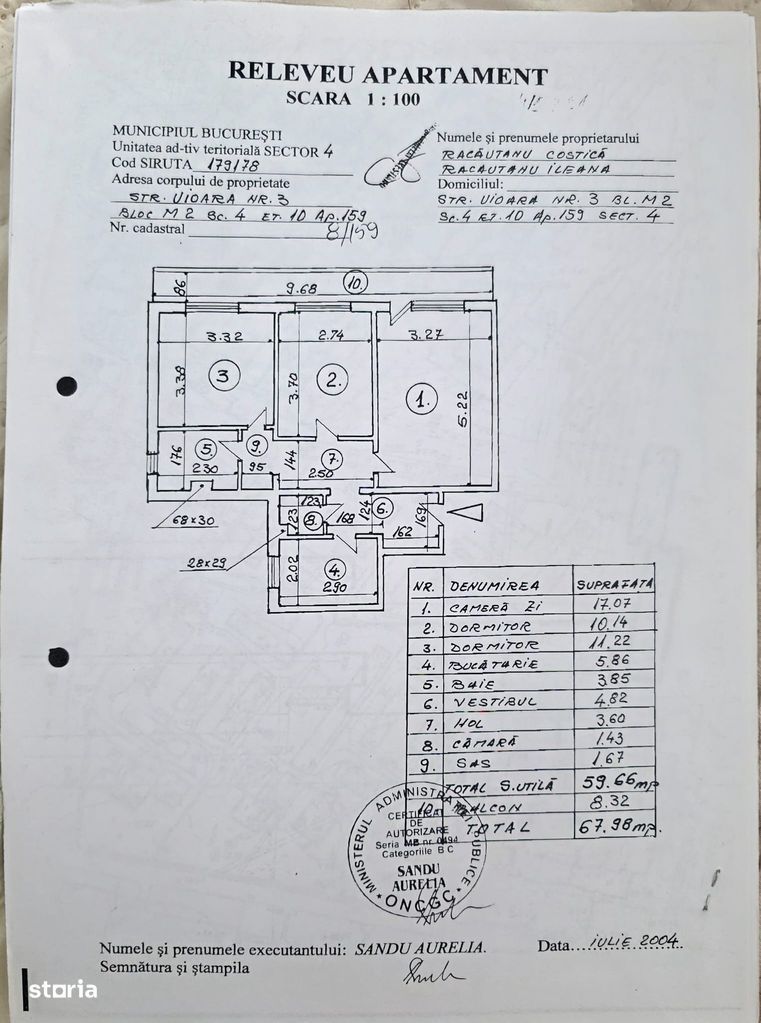 RELEVEU APARTAMENT
SCARA 1 : 100
MUNICIPIUL BUCUREŞTI
Unitatea ad-tiv teritorială SECTOR 4
Cod SIRUTA 179178
Adresa corpului de proprietate
STR. VIOARA NR. 3
BLOC M2 Sc. 4 ET. 10 Ap. 159
Nr. cadastral 8/159
Numele şi prenumele proprietarului
RACĂUTANU COSTICĂ
RACAUTANU ILEANA
Domiciliul:
STR. VIOARA NR. 3 BL. M2
Sc. 4 ET. 10 Ap. 159 SECT. 4
86
9.68
10.
3.32
2.74
3.27
3.38
3
3.70
2.
1.
5.22
176
5.
2.30
9.
95
144
7.
2.50
68x30
123
123
8.
168
124
6.
169
162
28x29
2.02
4.
2.90
NR. DENUMIREA SUPRAFAȚA
1. CAMERĂ ZI 17.07
2. DORMITOR 10.14
3. DORMITOR 11.22
4. BUCĂTARIE 5.86
5. BAIE 3.85
6. VESTIBUL 4.82
7. HOL 3.60
8. CĂMARĂ 1.43
9. SAS 1.67
TOTAL S.UTILĂ 59.66 mp
10. BALCON 8.32
TOTAL 67.98 mp.
MINISTERUL ADMINISTRAŢIEI PUBLICE
CERTIFICAT
DE
AUTORIZARE
Seria MB nr. 0494
Categoriile B C
SANDU
AURELIA
ONCGC
Numele şi prenumele executantului: SANDU AURELIA.
Data...IULIE 2004.
Semnătura şi ştampila
storia